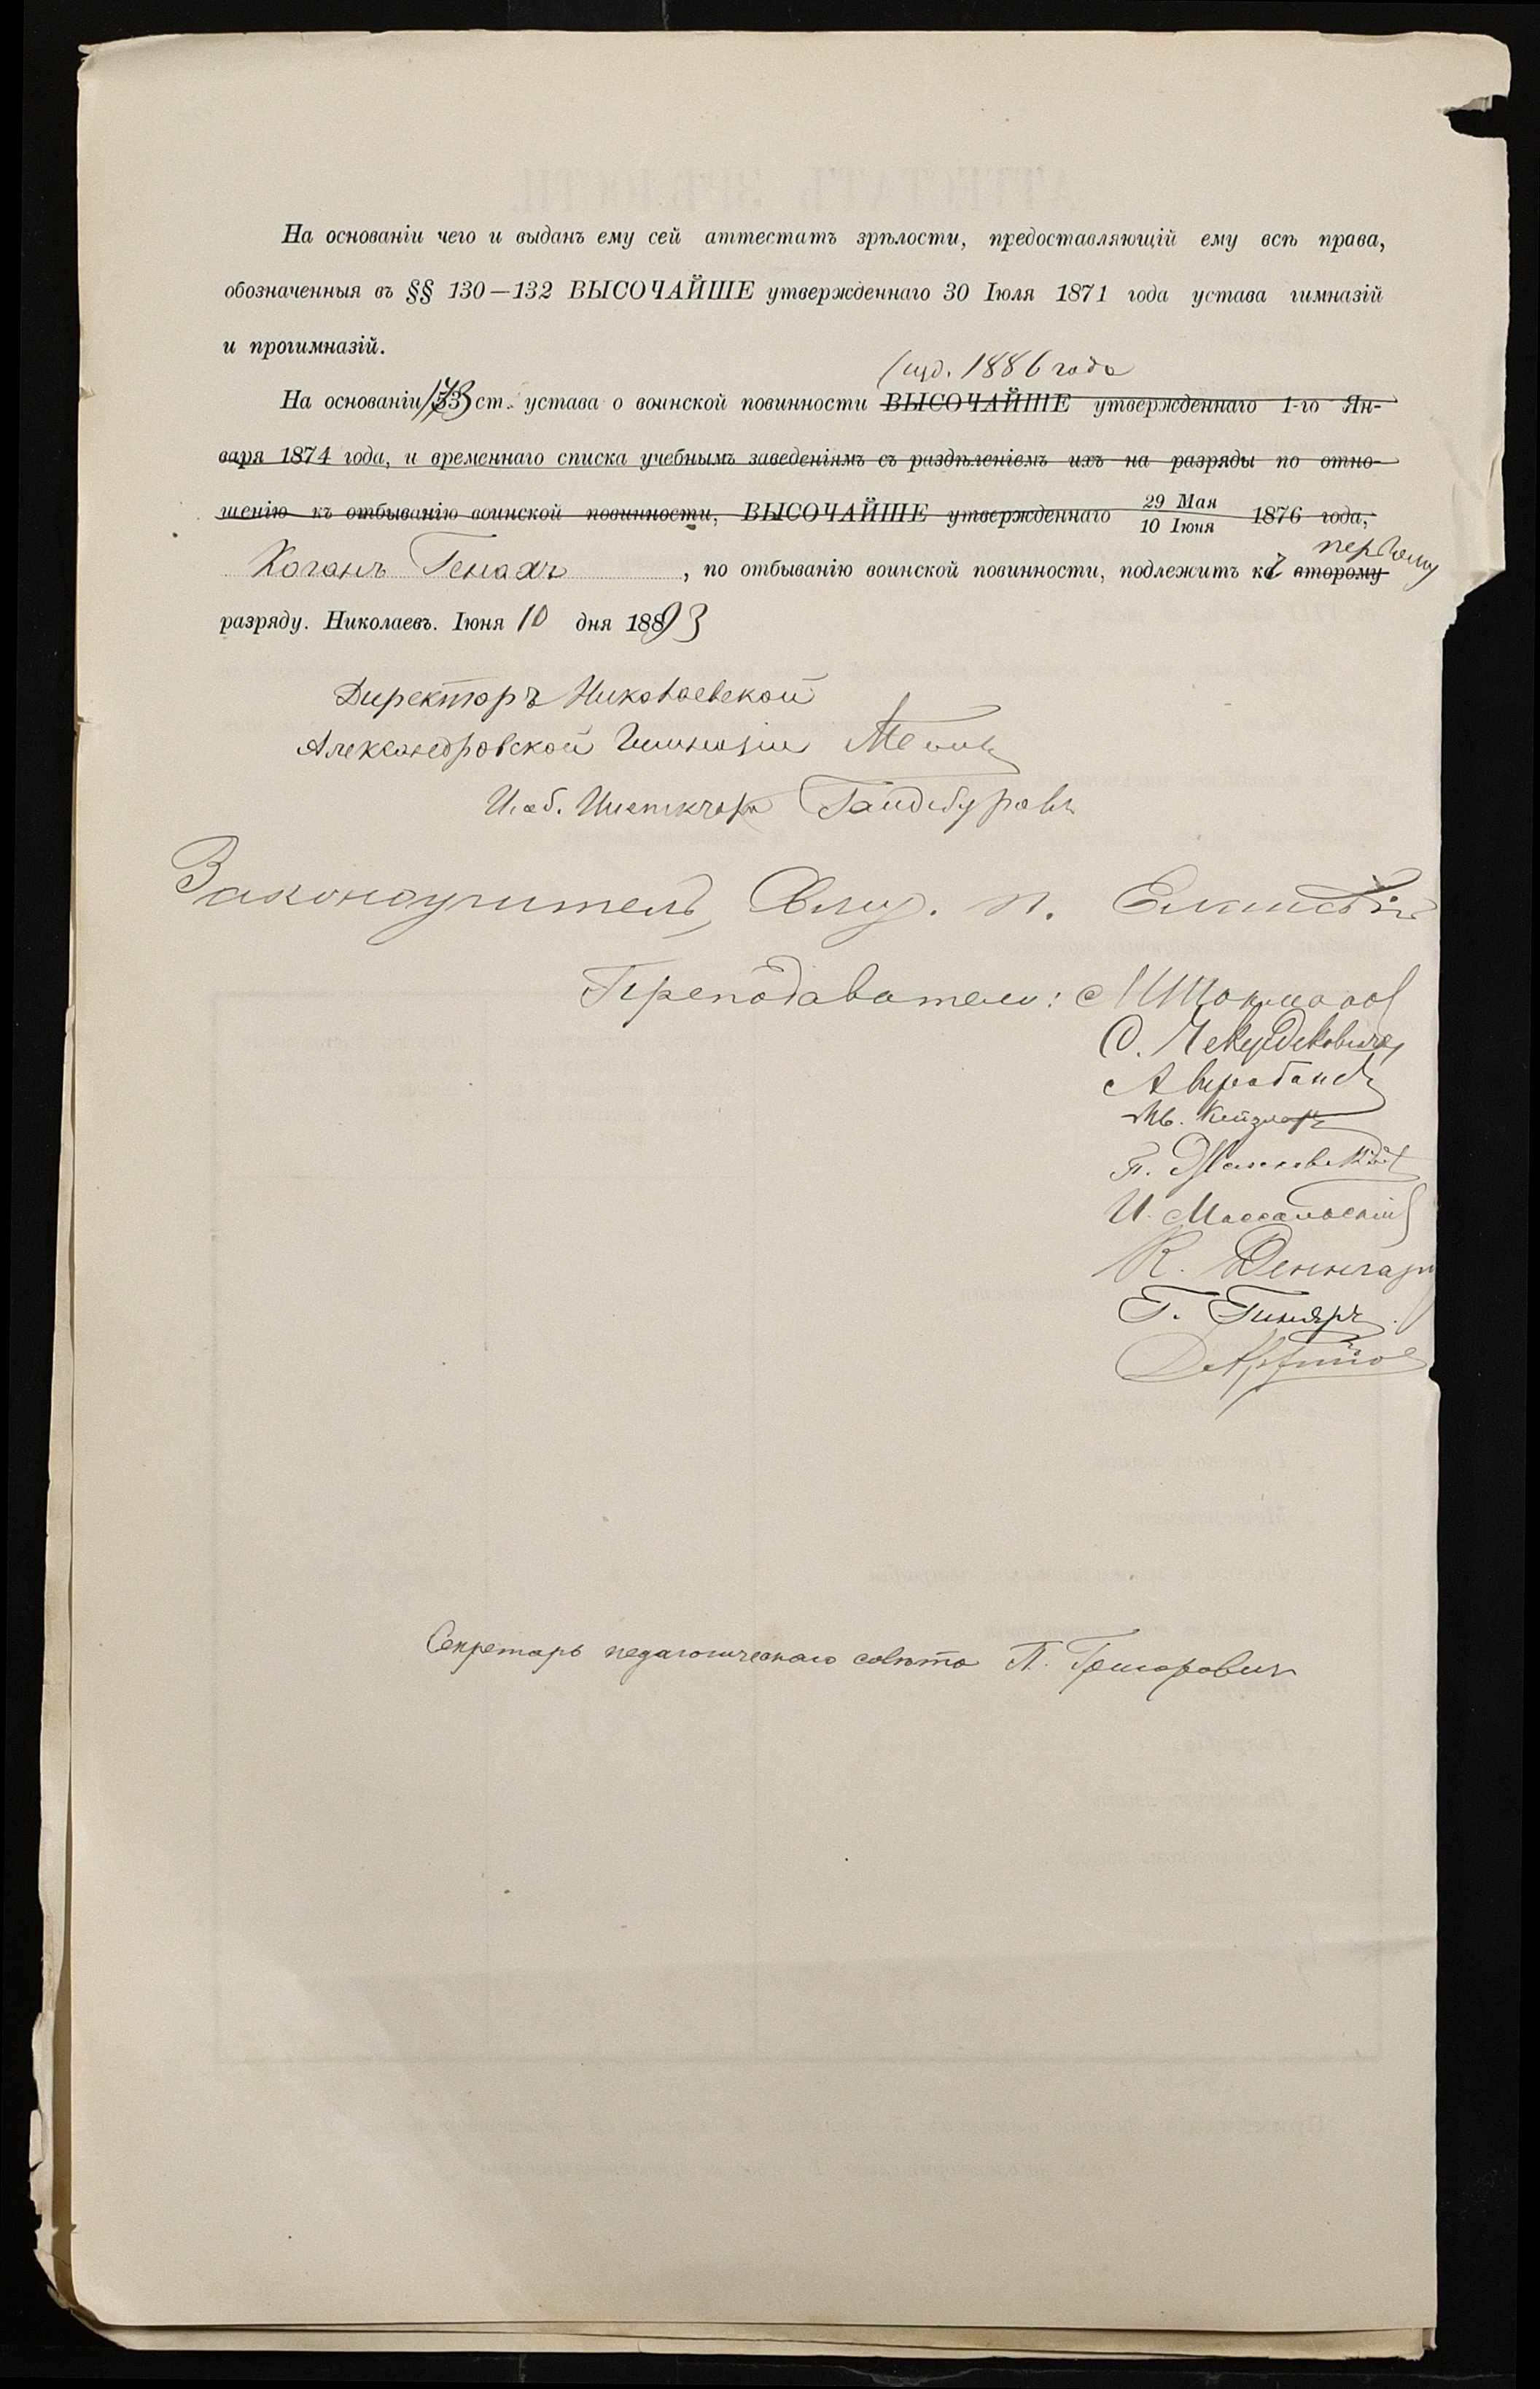 На основаніи чего и выданъ ему сей аттестатъ зрѣлости, предоставляющій ему всѣ права,
обозначенныя въ §§ 130—132 ВЫСОЧАЙШЕ утвержденнаго 30 Іюля 1871 года устава гимназій
и прогимназій.
(изд. 1886 года
На основаніи 173 ст. устава о воинской повинности ВЫСОЧАЙШЕ утвержденнаго 1-го Ян-
варя 1874 года, и временнаго списка учебнымъ заведеніямъ съ раздѣленіемъ ихъ на разряды по отно-
шенію къ отбыванію воинской повинности, ВЫСОЧАЙШЕ утвержденнаго 29 Мая 10 Іюня 1876 года,
первому
Коганъ Генахъ, по отбыванію воинской повинности, подлежитъ къ второму
разряду. Николаевъ. Іюня 10 дня 1893
Директоръ Николаевской
Александровской Гимназіи
И. об. Инспектора Гайдебуровъ
Законоучитель, п.
Преподаватели:
С.
А
П.
И. Массальскій
К.
Г.
Секретарь педагогическаго совѣта П. Григоровичъ